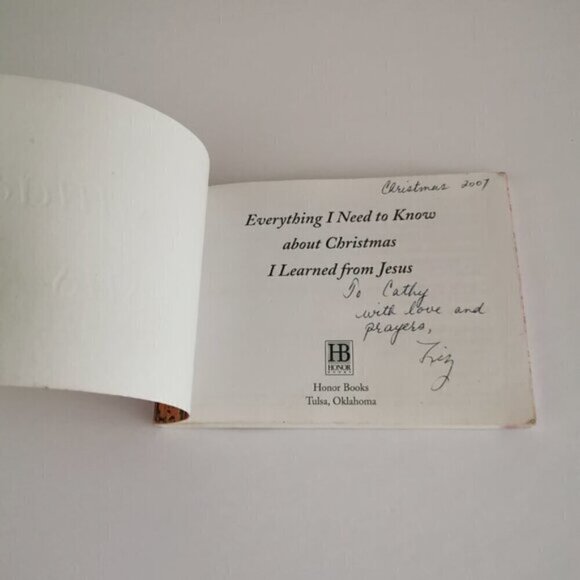 Christmas 2007
Everything I Need to Know
about Christmas
I Learned from Jesus
To Cathy
with love and
prayers,
Liz
HB
HONOR
BOOKS
Honor Books
Tulsa, Oklahoma